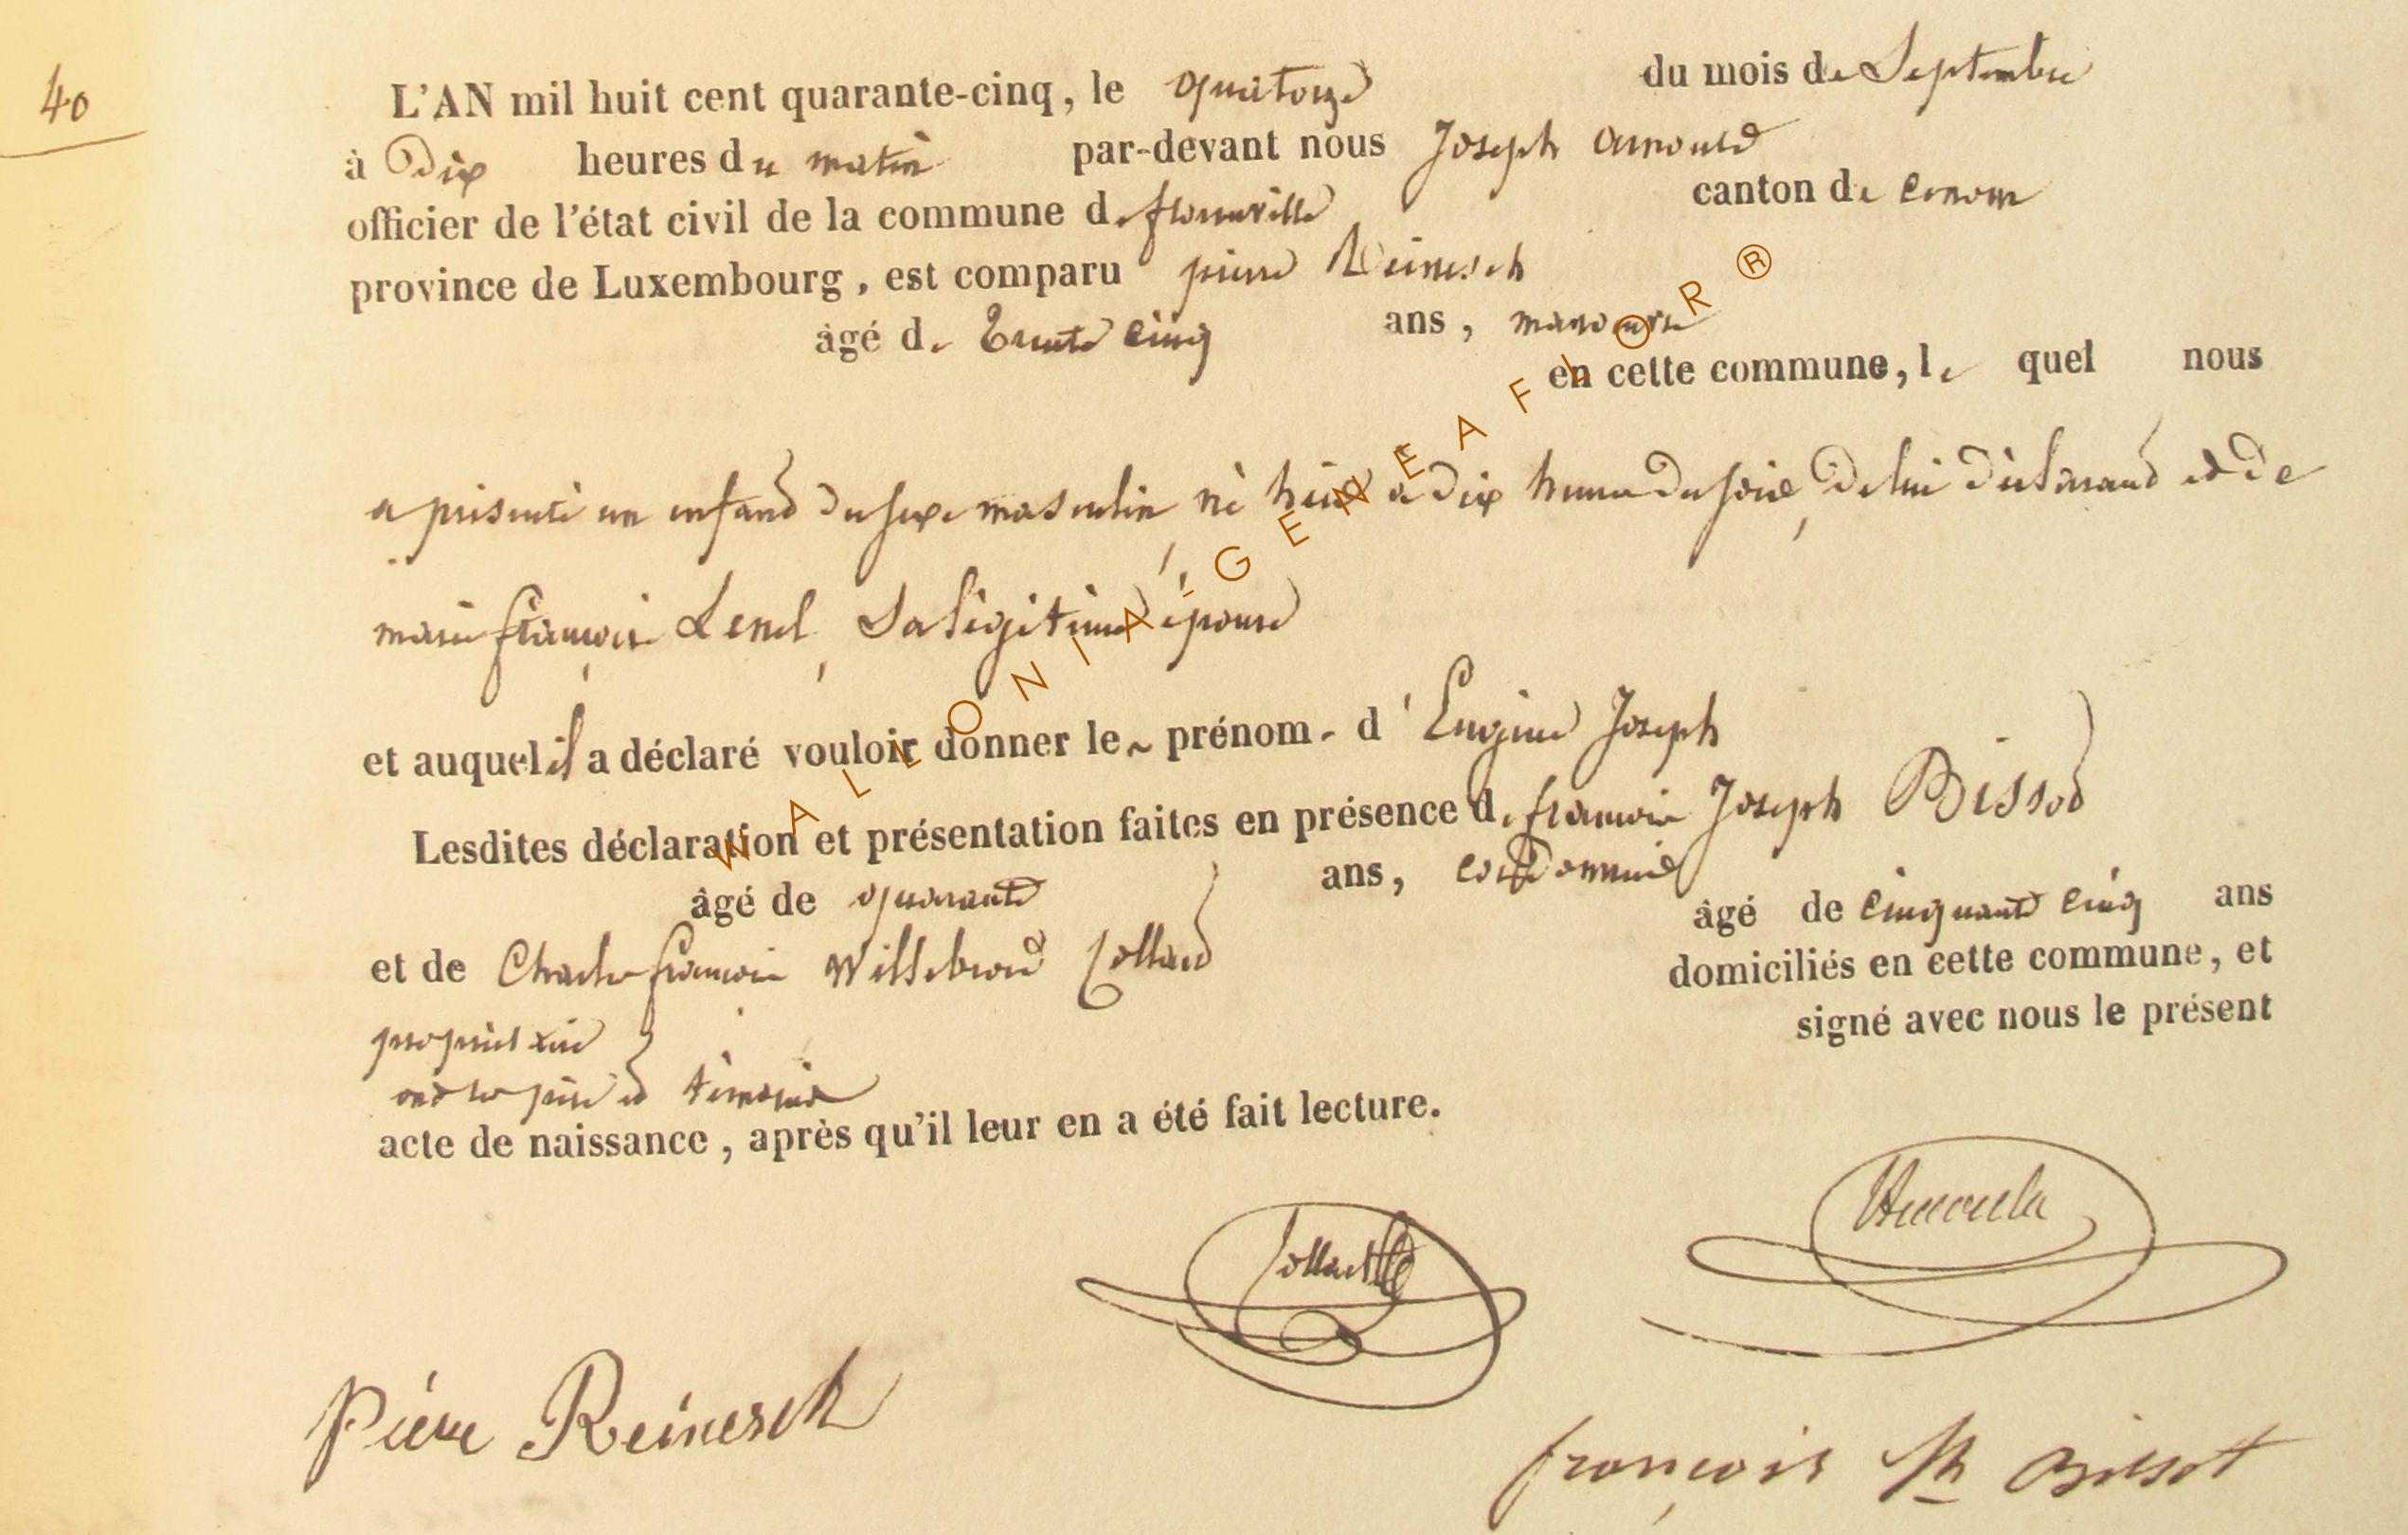 40
L'AN mil huit cent quarante-cinq, le quatorze du mois de Septembre
à Dix heures du matin par-devant nous Joseph Arnould
officier de l'état civil de la commune de florenville canton de
province de Luxembourg, est comparu pierre Reinesch
âgé de Trente cinq ans, manoeuvre
en cette commune, le quel nous
a présenté un enfant du sexe masculin, né hier a dix heures du soir, De lui Déclarant et De
marie françoise Lenel, Sa légitime épouse
et auquel il a déclaré vouloir donner le prénom d'Eugène Joseph
Lesdites déclaration et présentation faites en présence de françois Joseph Bissot
âgé de quarante ans, cordonnier
et de Charles françois Willebrord Collard âgé de cinquante cinq ans
propriétaire domiciliés en cette commune, et
ont les père et témoins signé avec nous le présent
acte de naissance, après qu'il leur en a été fait lecture.
Collard
Piere Reinesch
françois Jh Bissot
WALLONIA-GENEAFLOR ®